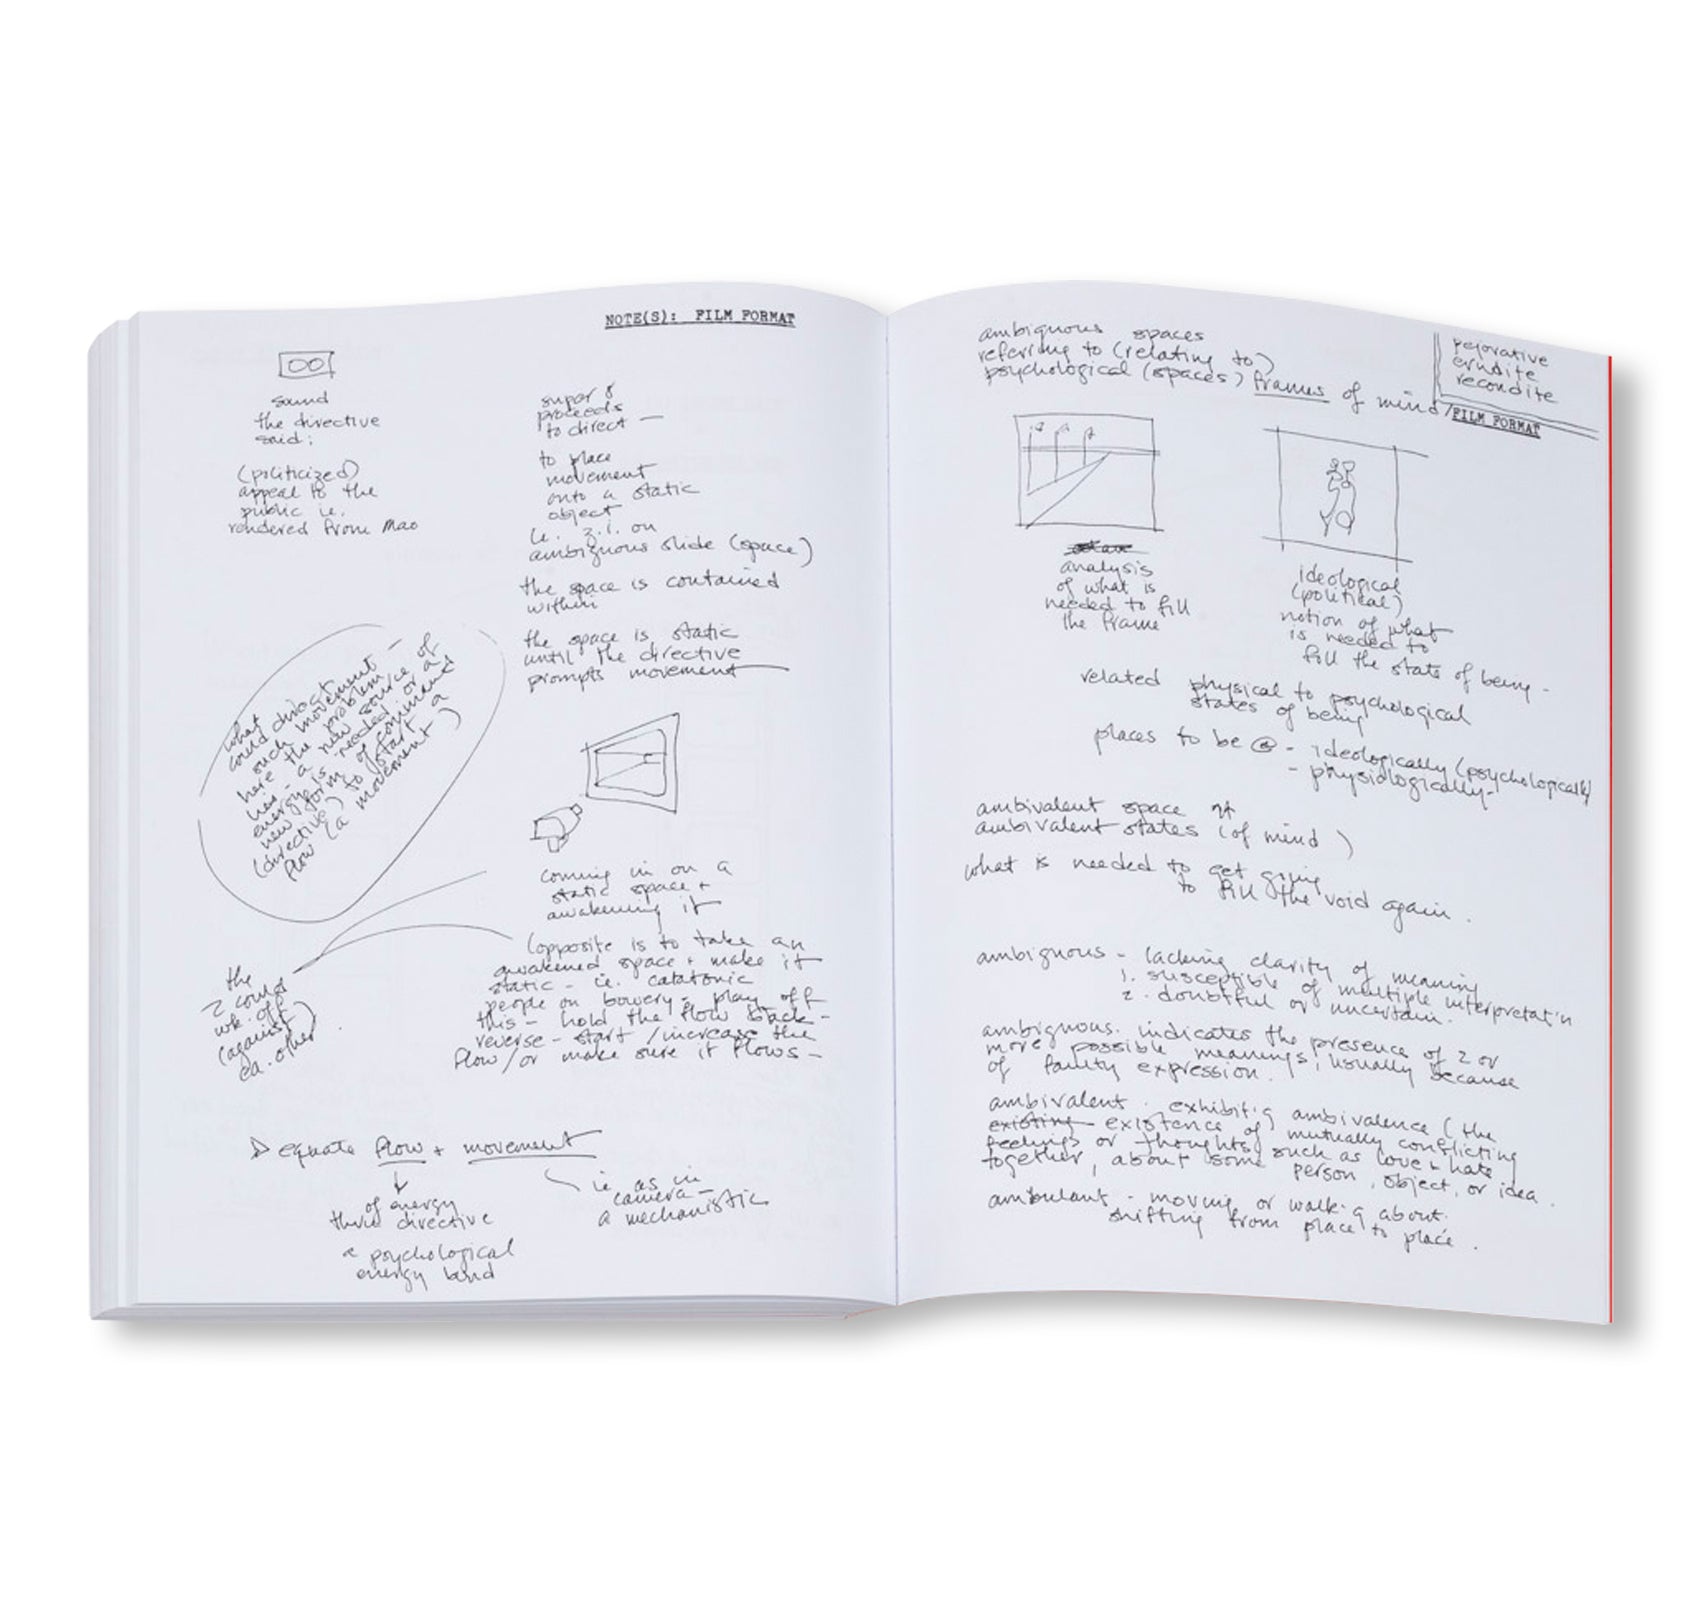 NOTE(S): FILM FORMAT
sound
the directive
said:
(politicized)
appeal to the
public ie.
rendered from Mao
super 8
proceeds
to direct —
to place
movement
onto a static
object
ie. z.i. on
ambiguous slide (space)
the space is contained
within
the space is static
until the directive
prompts movement
what
could direct
such movement -
here the problem
lies - a new source of
energy is needed or a
new form of command
(directive) to start a
flow (a movement)
coming in on a
static space +
awakening it
(opposite is to take an
awakened space + make it
static - ie. catatonic
people on bowery - play off
this - hold the flow back -
reverse - start / increase the
flow / or make sure it flows -
the
2 could
wk. off
(against)
ea. other
equate flow + movement
of energy
thru directive
a psychological
energy band
ie as in
camera -
a mechanistic
ambiguous spaces
referring to (relating to)
psychological (spaces) frames of mind /
pejorative
erudite
recondite
FILM FORMAT
analysis
of what is
needed to fill
the frame
ideological
(political)
notion of what
is needed to
fill the state of being -
related physical to psychological
states of being
places to be @ - ideologically (psychologically)
- physiologically -
ambivalent space
ambivalent states (of mind)
what is needed to get going
to fill the void again.
ambiguous - lacking clarity of meaning
1. susceptible of multiple interpretat'n
2. doubtful or uncertain.
ambiguous. indicates the presence of 2 or
more possible meanings, usually because
of faulty expression.
ambivalent. exhibit.g ambivalence (the
existing existence of mutually conflicting
feelings or thoughts, such as love + hate
together, about some person, object, or idea.
ambulant - moving or walk.g about.
shifting from place to place.